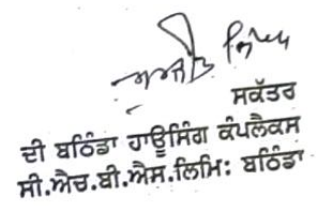 ਸਕੱਤਰ
ਦੀ ਬਠਿੰਡਾ ਹਾਊਸਿੰਗ ਕੰਪਲੈਕਸ
ਸੀ.ਐਚ.ਬੀ.ਐਸ.ਲਿਮਿ: ਬਠਿੰਡਾ